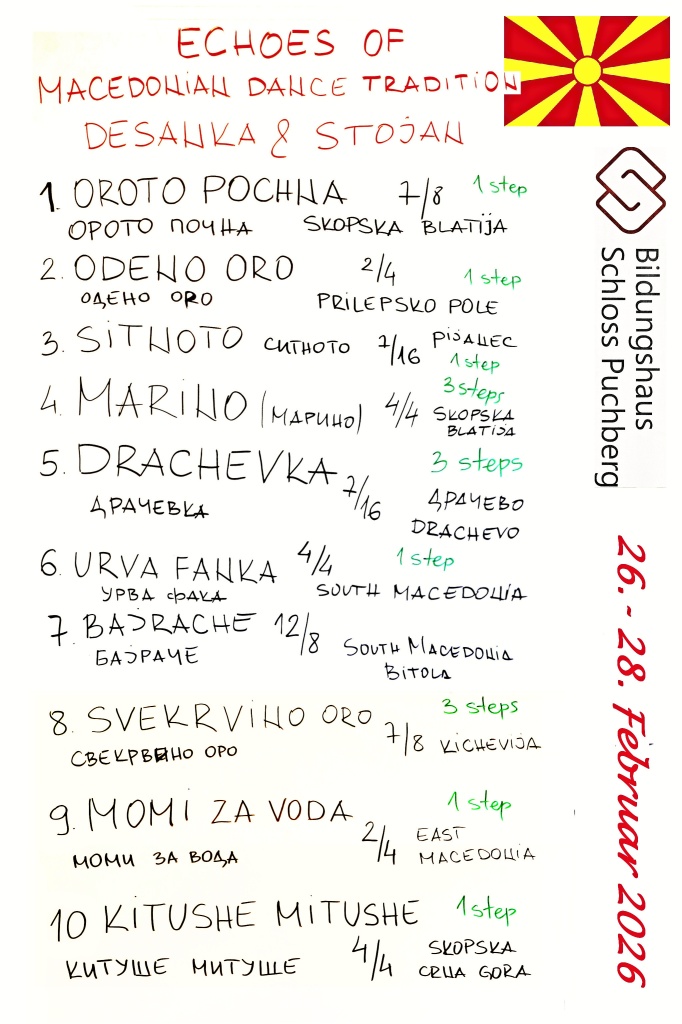 ECHOES OF
MACEDONIAN DANCE TRADITION
DESANKA & STOJAN
1. OROTO POCHNA 7/8 1 step
ОРОТО ПОЧНА SKOPSKA BLATIJA
2. ODENO ORO 2/4 1 step
ОДЕНО ORO PRILEPSKO POLE
3. SITNOTO СИТНОТО 7/16 PIJANEC
1 step
4. MARINO (МАРИНО) 4/4 3 steps
SKOPSKA
BLATIJA
5. DRACHEVKA 7/16 3 steps
ДРАЧЕВКА ДРАЧЕВО
DRACHEVO
6. URVA FANKA 4/4 1 step
УРВА ФАКА SOUTH MACEDONIA
7. BAJRACHE 12/8 SOUTH MACEDONIA
БАЈРАЧЕ BITOLA
8. SVEKRVINO ORO 7/8 3 steps
СВЕКРВИНО ОРО KICHEVIJA
9. MOMI ZA VODA 2/4 1 step
МОМИ ЗА ВОДА EAST
MACEDONIA
10 KITUSHE MITUSHE 4/4 1 step
КИТУШЕ МИТУШЕ SKOPSKA
CRNA GORA
Bildungshaus
Schloss Puchberg
26. - 28. Februar 2026